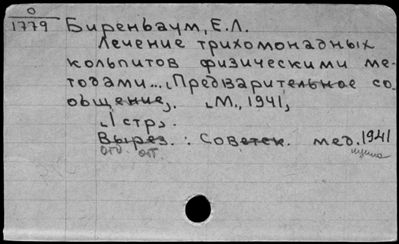 0
1779 Биренбаум, Е.Л.
Лечение трихомонадных
кольпитов физическими ме-
тодами... „Предварительное со-
общение„. „М., 1941„
„1 стр„.
Вырез. : Советск. мед. 1941
отд. отт.